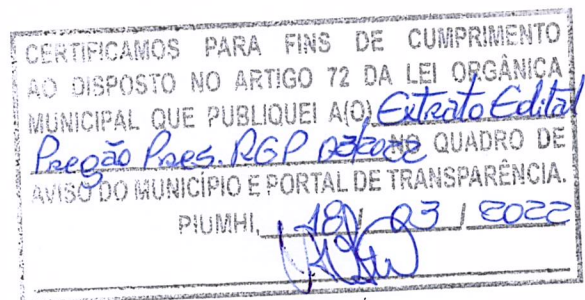 CERTIFICAMOS PARA FINS DE CUMPRIMENTO
AO DISPOSTO NO ARTIGO 72 DA LEI ORGÂNICA
MUNICIPAL QUE PUBLIQUEI A(O) Extrato Edital
Pregão Pres. RGP NO QUADRO DE
AVISO DO MUNICÍPIO E PORTAL DE TRANSPARÊNCIA.
PIUMHI, 18 / 03 / 2022